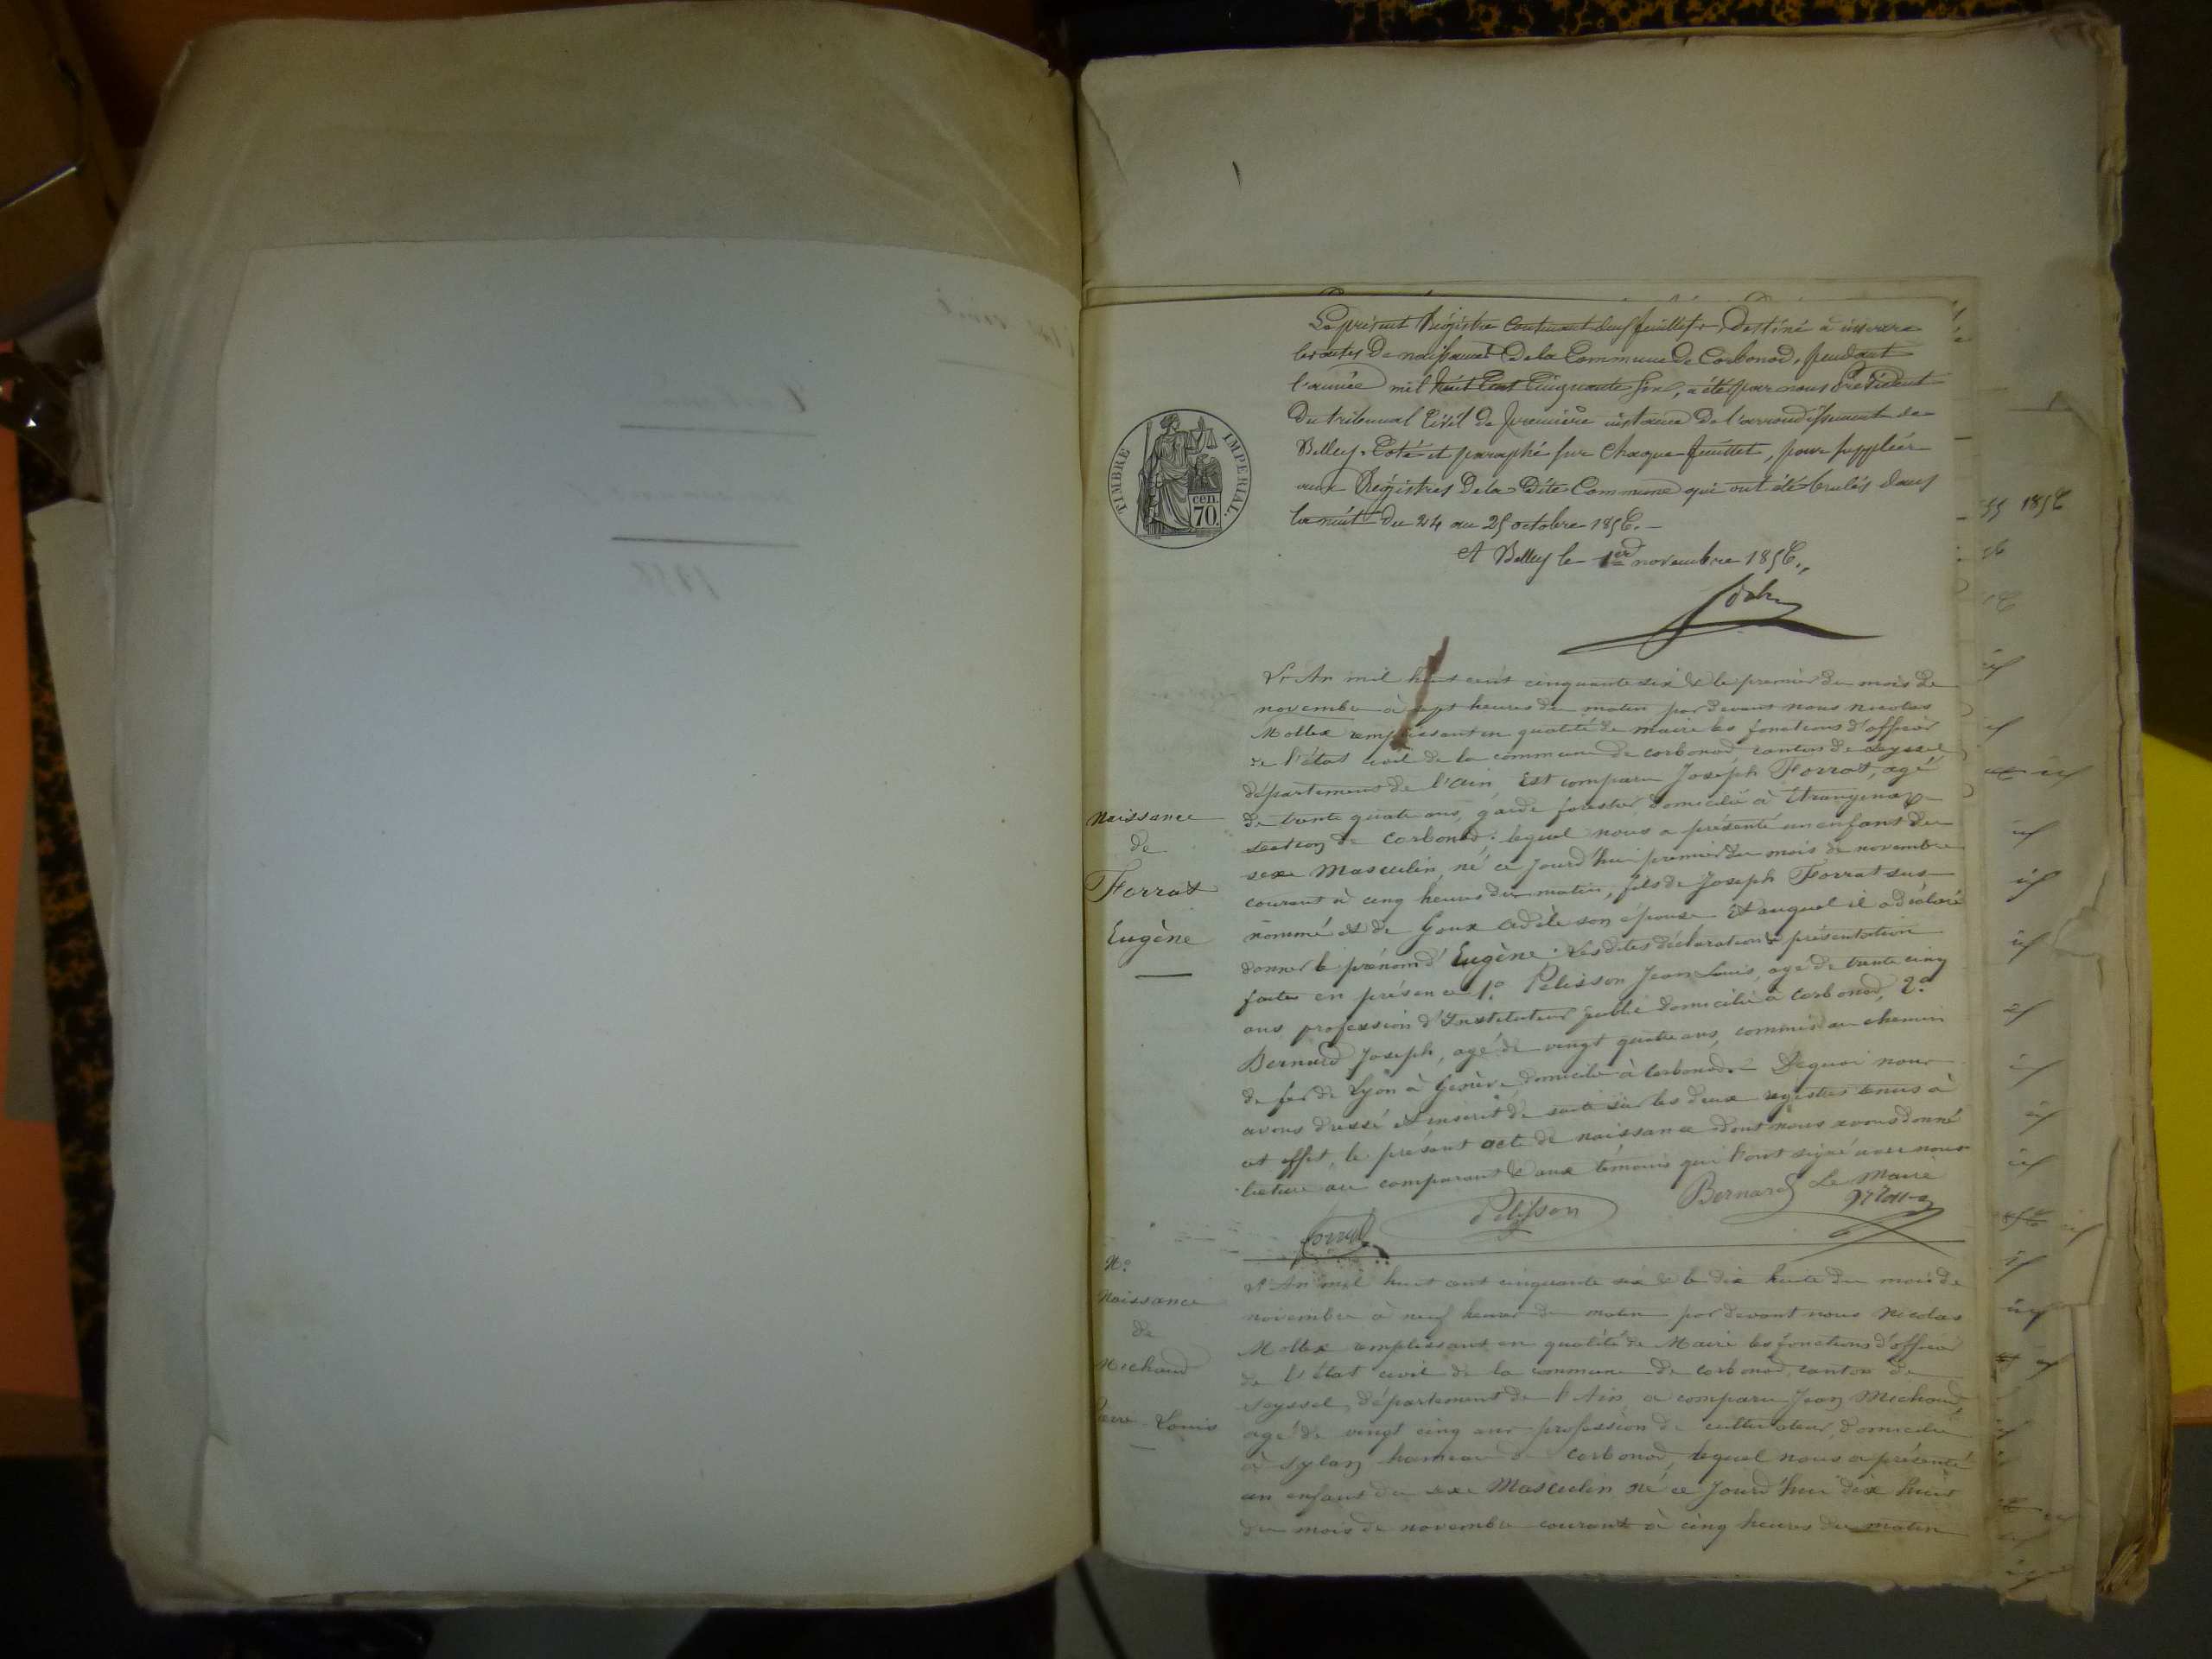 Le présent Régistre contenant deux feuillets, destiné à inscrire
les actes de naissance de la Commune de Corbonod, pendant
l'année mil huit cent cinquante six, a été par nous Président
du tribunal civil de première instance de l'arrondissement de
Belley, coté et paraphé sur chaque feuillet, pour suppléer
aux Régistres de la dite Commune qui ont été brulés dans
la nuit du 24 au 25 octobre 1856.
A Belley le 1er novembre 1856.
TIMBRE IMPERIAL.
cen.
70.
L'An mil huit cent cinquante six & le premier du mois de
novembre à sept heures du matin par devant nous Nicolas
Mollex remplissant en qualité de maire les fonctions d'officier
de l'état civil de la commune de corbonod canton de Seyssel
département de l'Ain, Est comparu Joseph Forrat, agé
de trente quatre ans, garde forestier domicilié à
section de Corbonod; lequel nous a présenté un enfant du
sexe Masculin, né ce jourd'hui premier du mois de novembre
courant à cinq heures du matin, fils de Joseph Forrat sus
nommé et de Goux Adèle son épouse Et auquel il a déclaré
donner le prénom d'Eugène. Les dites déclaration & présentation
faites en présence 1.o Pélisson Jean Louis, agé de trente cinq
ans profession d'Instituteur public domicilié à Corbonod, 2.o
Bernard Joseph, agé de vingt quatre ans, commis au chemin
de fer de Lyon à Genève domicilié à Corbonod. Dequoi nous
avons dressé et inscrit de suite sur les deux registres tenus à
cet effet, le présent acte de naissance dont nous avons donné
lecture au comparant & aux témoins qui l'ont signé avec nous
Naissance
de
Forrat
Eugène
Forrat
Pelisson
Bernard
Le Maire
Mollex
N.o
Naissance
de
Michaud
Pierre-Louis
L'An mil huit cent cinquante six & le dix huite du mois de
novembre à neuf heures du matin par devant nous Nicolas
Mollex remplissant en qualité de Maire les fonctions d'officier
de l'état civil de la commune de corbonod, canton de
Seyssel, département de l'Ain, a comparu Jean Michaud,
agé de vingt cinq ans profession de cultivateur, domicilié
à Sylan hameau de Corbonod, lequel nous a présenté
un enfant du sexe Masculin né ce jourd'hui dix huit
du mois de novembre courant à cinq heures du matin
1856